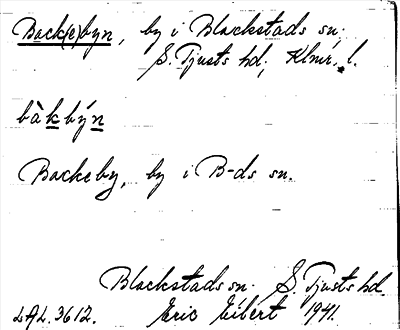 Back(e)byn, by i Blackstads sn;
S. Tjusts hd; Klmr. l.
bàkbýn
Backeby, by i B-ds sn.
Blackstads sn. S. Tjusts hd.
LAL. 3612. Eric Eibert 1941.